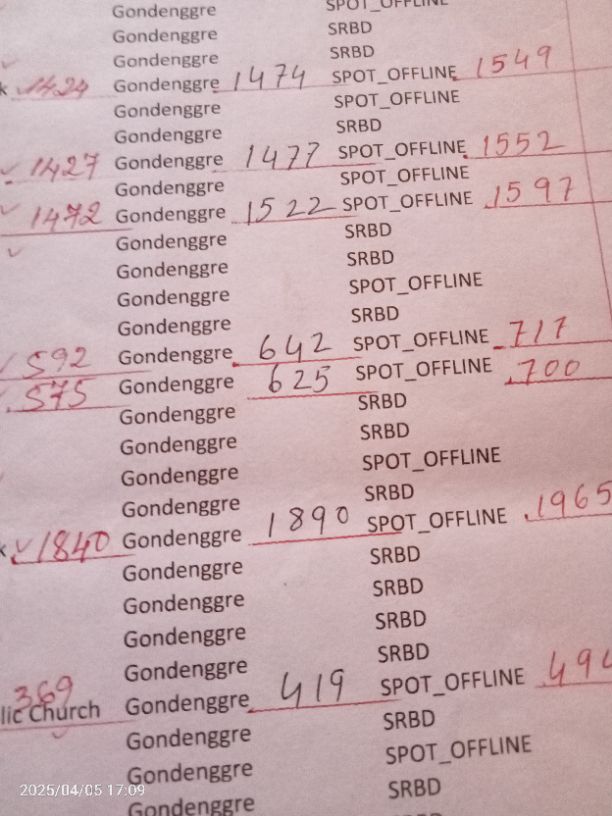 Gondenggre SPOT_OFFLINE
Gondenggre SRBD
Gondenggre SRBD
1424 Gondenggre 1474 SPOT_OFFLINE 1549
Gondenggre SPOT_OFFLINE
Gondenggre SRBD
1427 Gondenggre 1477 SPOT_OFFLINE 1552
Gondenggre SPOT_OFFLINE
1472 Gondenggre 1522 SPOT_OFFLINE 1597
Gondenggre SRBD
Gondenggre SRBD
Gondenggre SPOT_OFFLINE
Gondenggre SRBD
592 Gondenggre 642 SPOT_OFFLINE 717
575 Gondenggre 625 SPOT_OFFLINE 700
Gondenggre SRBD
Gondenggre SRBD
Gondenggre SPOT_OFFLINE
Gondenggre SRBD
k 1840 Gondenggre 1890 SPOT_OFFLINE 1965
Gondenggre SRBD
Gondenggre SRBD
Gondenggre SRBD
Gondenggre SRBD
369
lic Church Gondenggre 419 SPOT_OFFLINE 494
Gondenggre SRBD
Gondenggre SPOT_OFFLINE
Gondenggre SRBD
Gondenggre
2025/04/05 17:09